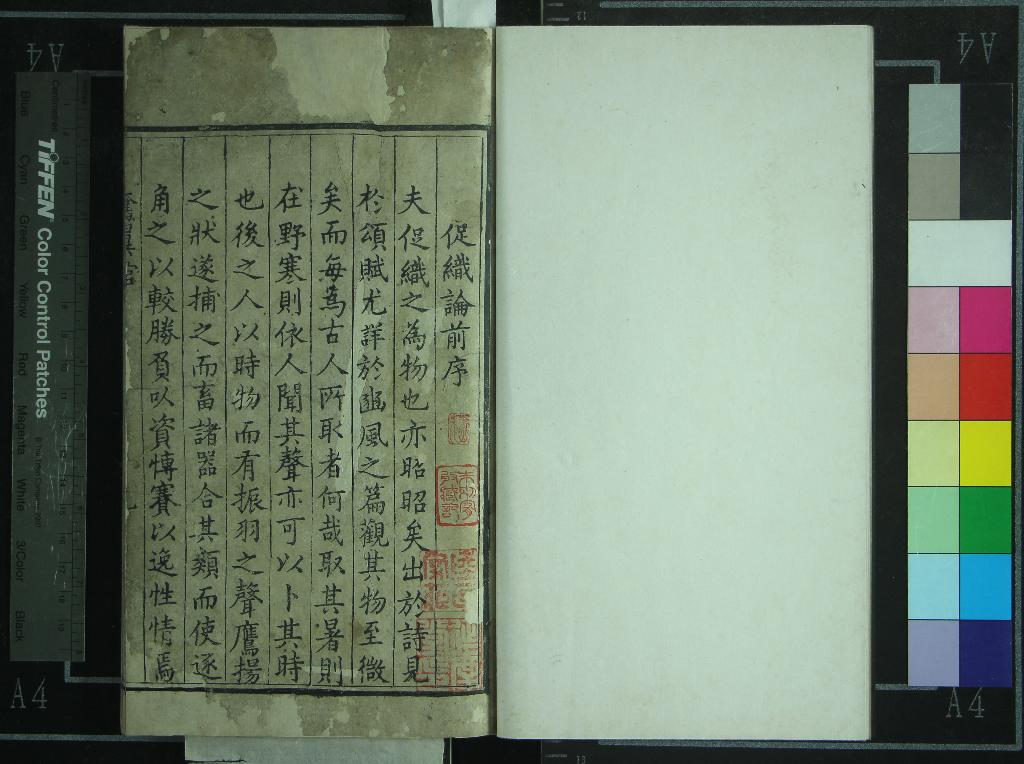 促織論前序
夫促織之為物也亦昭昭矣出於詩見
於頌賦尤詳於豳風之篇觀其物至微
矣而每為古人所取者何哉取其暑則
在野寒則依人聞其聲亦可以卜其時
也後之人以時物而有振羽之聲鷹揚
之狀遂捕之而畜諸器合其類而使逐
角之以較勝負以資慱賽以逸性情焉
TIFFEN Color Control Patches
Blue
Cyan
Green
Yellow
Red
Magenta
White
3/Color
Black
A4
A4
A4
A4